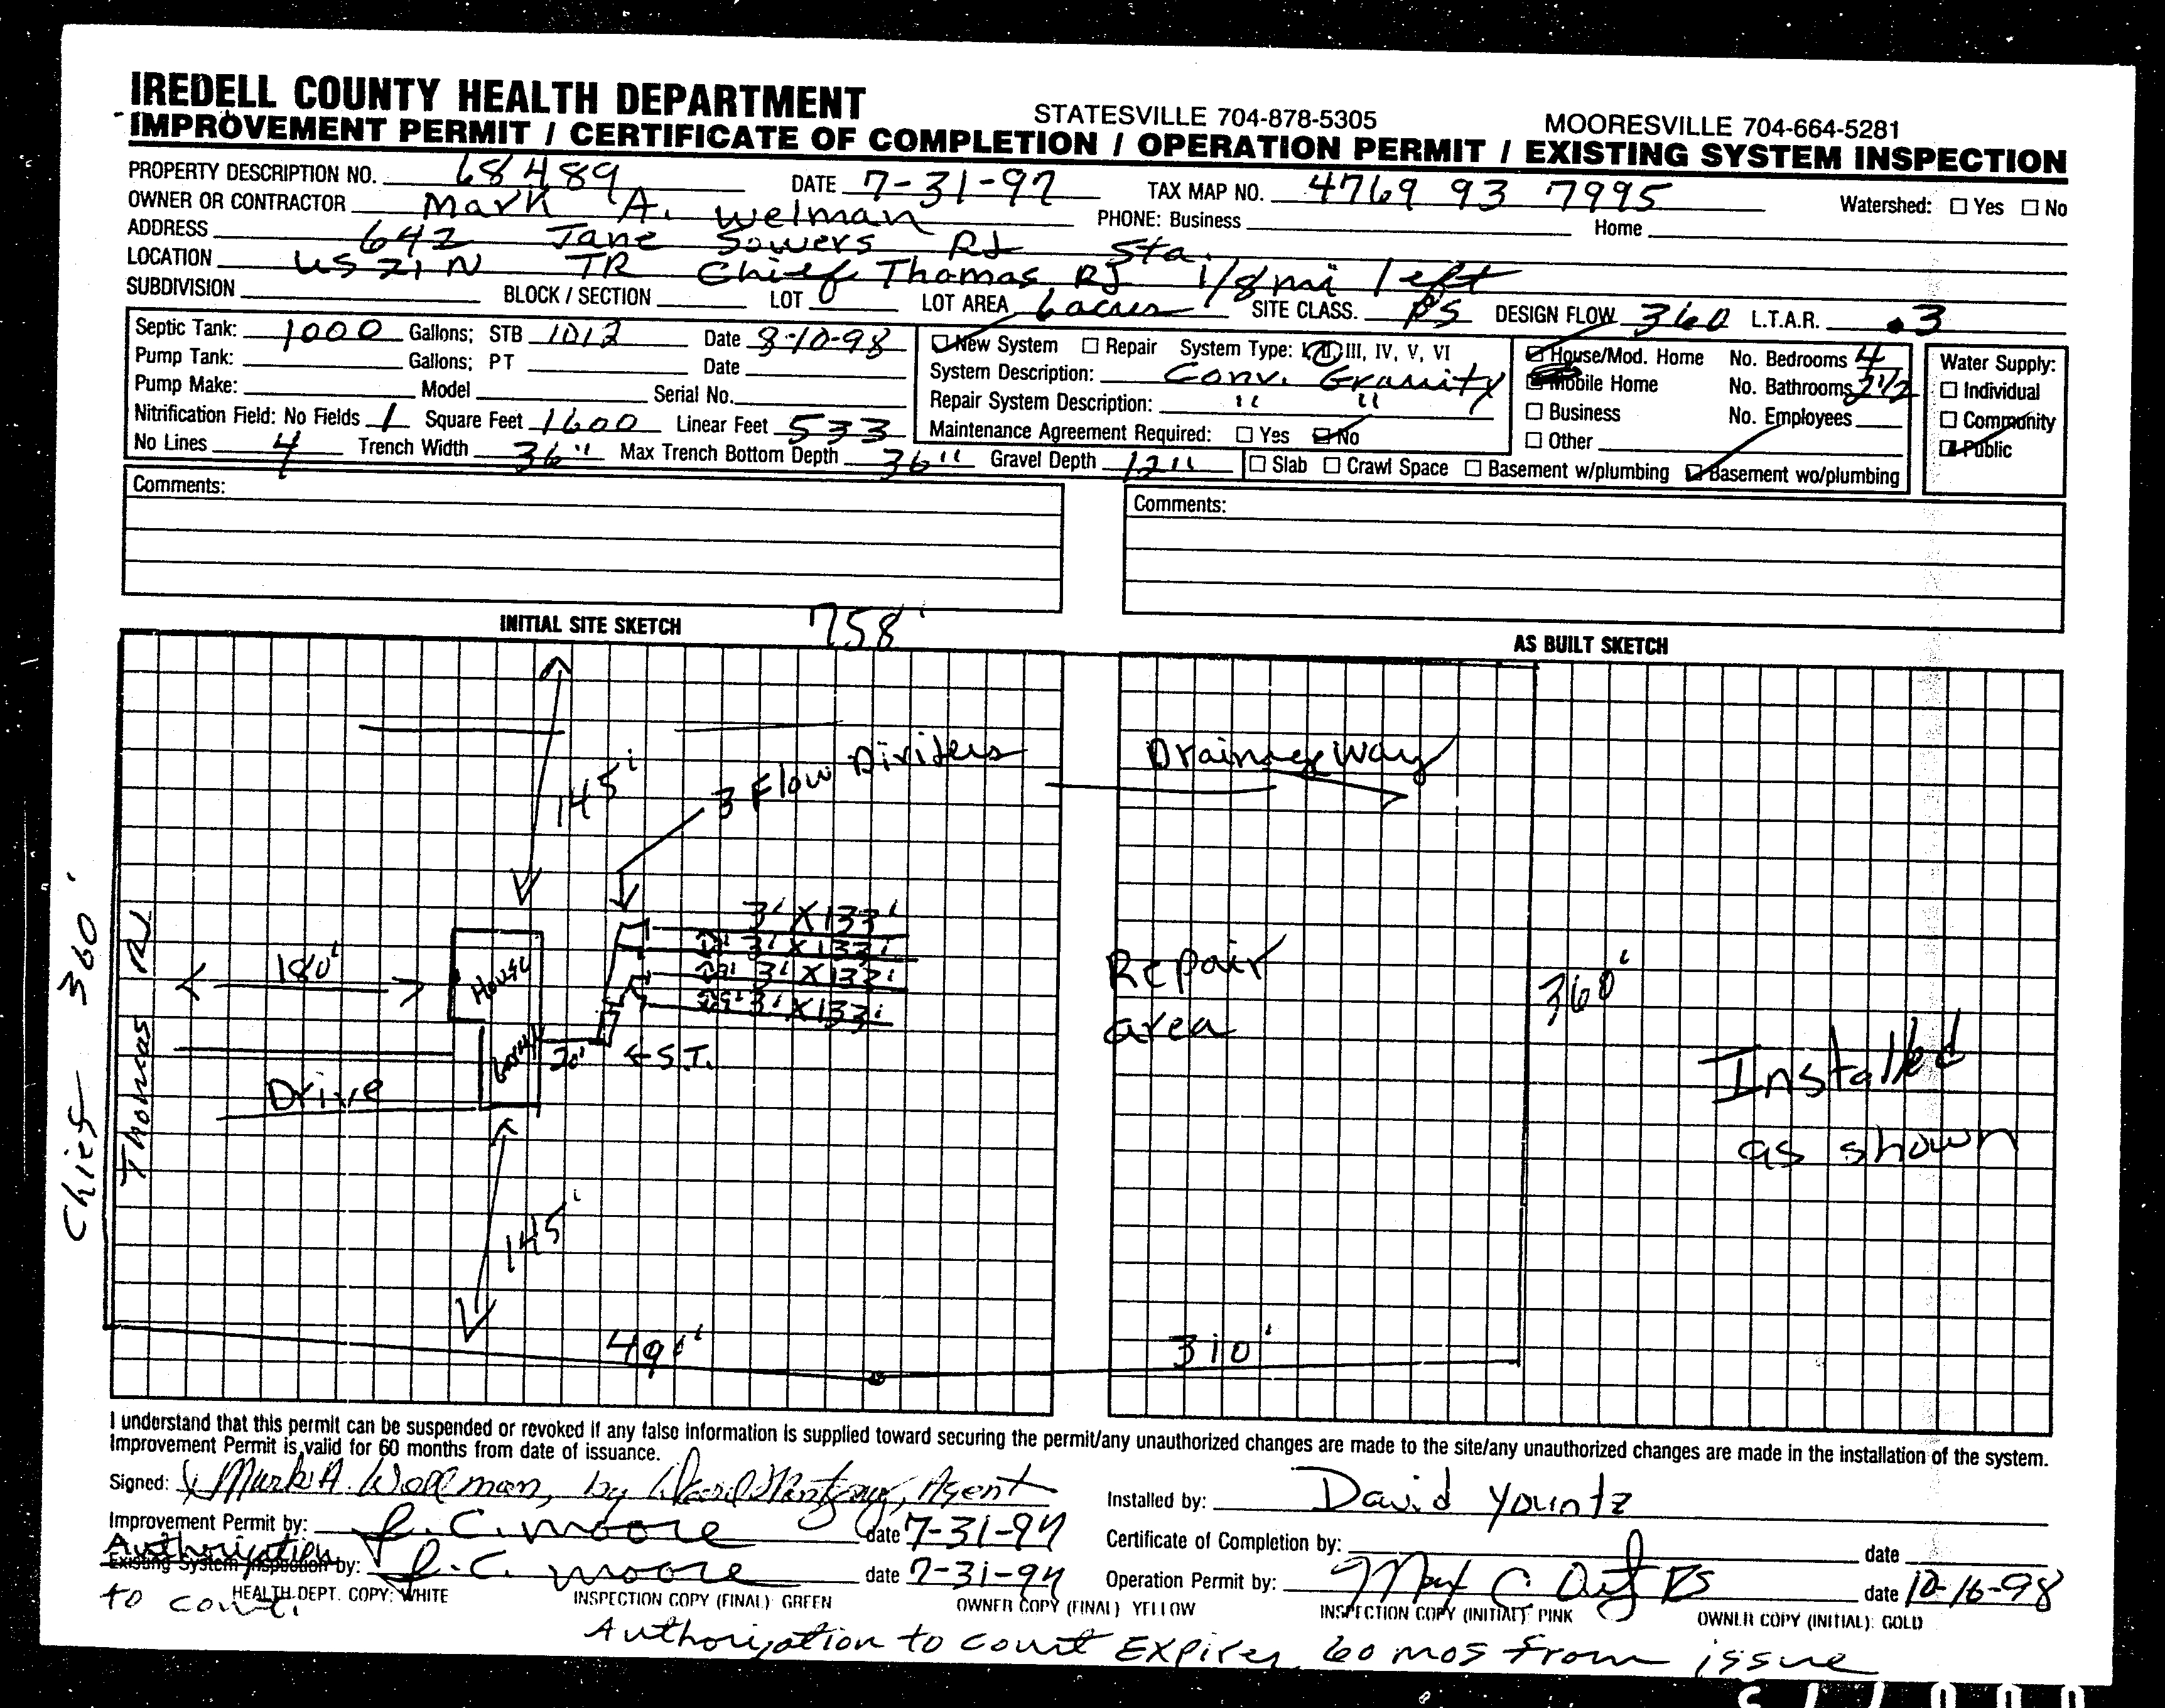 IREDELL COUNTY HEALTH DEPARTMENT
STATESVILLE 704-878-5305 MOORESVILLE 704-664-5281
IMPROVEMENT PERMIT / CERTIFICATE OF COMPLETION / OPERATION PERMIT / EXISTING SYSTEM INSPECTION
PROPERTY DESCRIPTION NO. 68489 DATE 7-31-97 TAX MAP NO. 4769 93 7995 Watershed: ☐ Yes ☐ No
OWNER OR CONTRACTOR Mark A. Welman PHONE: Business Home
ADDRESS 642 Jane Sowers Rd Sta.
LOCATION US 21 N TR Chief Thomas Rd 1/8 mi left
SUBDIVISION BLOCK / SECTION LOT LOT AREA 6 acres SITE CLASS. PS DESIGN FLOW 360 L.T.A.R. .3
Septic Tank: 1000 Gallons; STB 1012 Date 8-10-98
Pump Tank: Gallons; PT Date
Pump Make: Model Serial No.
Nitrification Field: No Fields 1 Square Feet 1600 Linear Feet 533
No Lines 4 Trench Width 36" Max Trench Bottom Depth 36" Gravel Depth 12"
☑ New System ☐ Repair System Type: I, II, III, IV, V, VI
System Description: Conv. Gravity
Repair System Description: " "
Maintenance Agreement Required: ☐ Yes ☑ No
☑ House/Mod. Home No. Bedrooms 4
Mobile Home No. Bathrooms 2 1/2
☐ Business No. Employees
☐ Other
☐ Slab ☐ Crawl Space ☐ Basement w/plumbing ☑ Basement wo/plumbing
Water Supply:
☐ Individual
☐ Community
☑ Public
Comments:
Comments:
INITIAL SITE SKETCH 758'
AS BUILT SKETCH
145'
3 Flow Dividers
Drainage Way
3' X 133'
9' 3' X 133'
9' 3' X 133'
9' 3' X 133'
180'
House
20' ← S.T.
Drive
Chief Thomas Rd 360'
Repair area
360'
Installed as shown
145'
310'
I understand that this permit can be suspended or revoked if any false information is supplied toward securing the permit/any unauthorized changes are made to the site/any unauthorized changes are made in the installation of the system.
Improvement Permit is valid for 60 months from date of issuance.
Signed: Mark A. Wellman, by Agent
Installed by: David Yountz
Improvement Permit by: J. C. Moore date 7-31-97
Certificate of Completion by: date
Authorization to const.
Existing System Inspection by: J. C. Moore date 7-31-97
Operation Permit by: RS date 10-16-98
HEALTH DEPT. COPY: WHITE INSPECTION COPY (FINAL) GREEN OWNER COPY (FINAL) YELLOW INSPECTION COPY (INITIAL): PINK OWNER COPY (INITIAL): GOLD
Authorization to const Expires 60 mos from issue